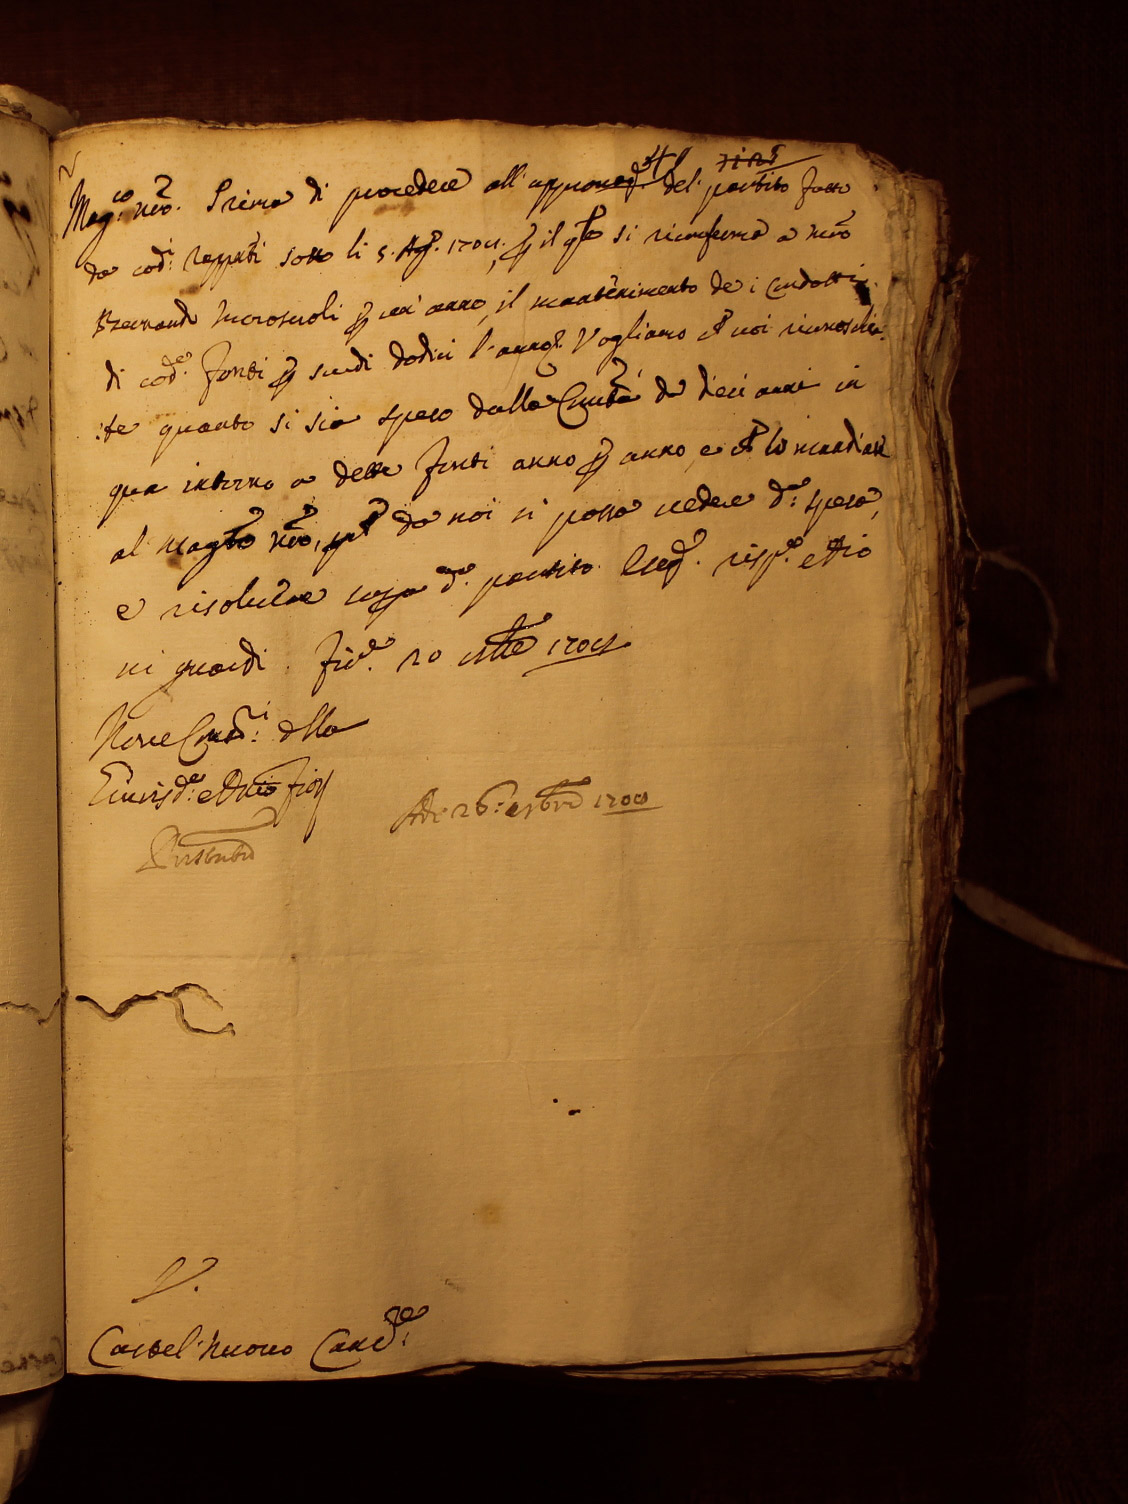 Mag.co nro. Prima di procedere all'approuaz.e del partito fatto
da cod.i rappnti sotto li 5. Ag.to 1704. p il qle si riconferma a mro
Bernardo p un' anno, il mantenimento de i Condotti
di cod.e fonti p scudi dodici l'anno. Vogliamo che uoi riconoscia:
:te quanto si sia speso dalla Cmtà da dieci anni in
qua intorno a dette fonti anno p anno, e che lo mandiate
al magto nro, pche da noi si possa uedere d.a spesa,
e risoluere sopra d.o partito. Eseq. risp.e e Dio
ui guardi. Fir.e 20 1704
Noue Cons.i della
Giurisd.e e Dnio Fior.
Adi 26: 1704
V.
Castel nuouo Canc.re